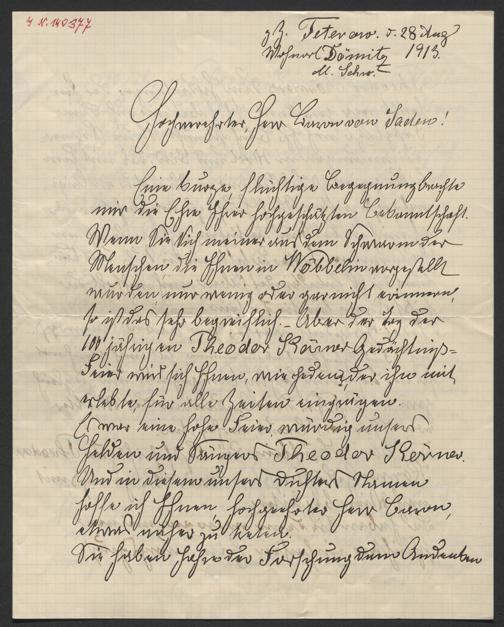 J. N. 140377
z. Z. Teterow. d. 28 Aug
Wohnort Dömitz 1913.
M. Schw.
Hochverehrter, Herr Baron von Saden!
Eine kurze flüchtige Begegnung brachte
mir die Ehre Ihrer hochgeschätzten Bekanntschaft.
Wenn Sie sich meiner aus dem Schwarm der
Menschen die Ihnen in Wöbbelin vorgestellt
wurden nur wenig oder gar nicht erinnern,
so ist das sehr begreiflich. – Aber der Tag der
100 jährigen Theodor Körner Gedächtniß-
Feier wird sich Ihnen, wie jedem, der ihn mit
erlebte, für alle Zeiten einprägen.
Es war eine hohe Feier würdig unsers
Helden und Sängers Theodor Körner.
Und in diesem unsers Dichters Namen
hoffe ich Ihnen, hochgeehrter Herr Baron,
etwas näher zu treten.
Sie haben Jahre der Forschung dem Andenken